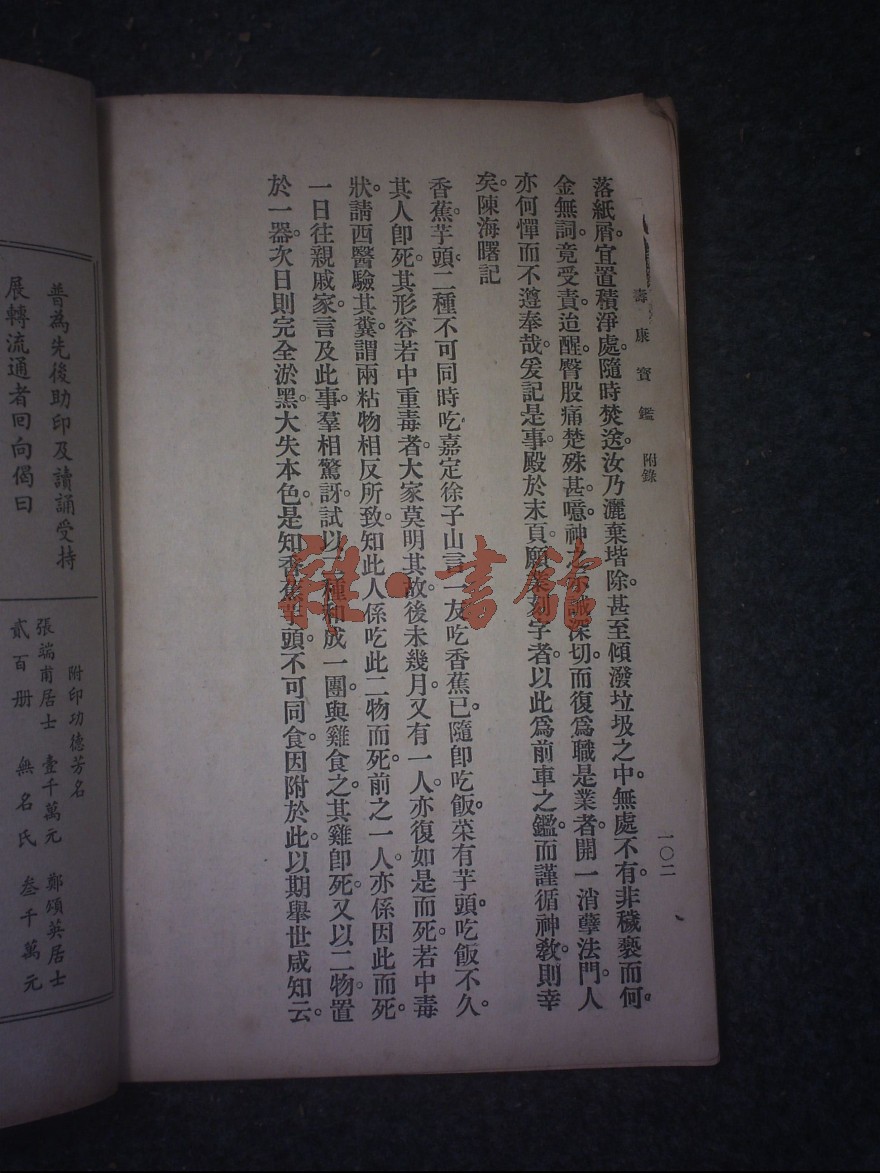 壽康寶鑑 附錄
一〇二
落紙屑。宜置積淨處。隨時焚送。汝乃灑棄堦除。甚至傾潑垃圾之中。無處不有。非穢褻而何。
金無詞。竟受責。迨醒。臀股痛楚殊甚。噫。神之示誡深切。而復爲職是業者。開一消孽法門。人
亦何憚而不遵奉哉。爰記是事。殿於末頁。願業刻字者。以此爲前車之鑑。而謹循神教。則幸
矣。陳海曙記
香蕉。芋頭。二種不可同時吃。嘉定徐子山言。一友吃香蕉已。隨卽吃飯。菜有芋頭。吃飯不久。
其人卽死。其形容若中重毒者。大家莫明其故。後未幾月。又有一人。亦復如是而死。若中毒
狀。請西醫驗其糞。謂兩粘物相反所致。知此人係吃此二物而死。前之一人。亦係因此而死。
一日往親戚家。言及此事。羣相驚訝。試以二種和成一團。與雞食之。其雞卽死。又以二物置
於一器。次日則完全淤黑。大失本色。是知香蕉芋頭。不可同食。因附於此。以期舉世咸知云。
雜·書館
普為先後助印及讀誦受持
展轉流通者回向偈曰
附印功德芳名
張端甫居士 壹千萬元 鄭頌英居士
貳百册 無名氏 叁千萬元